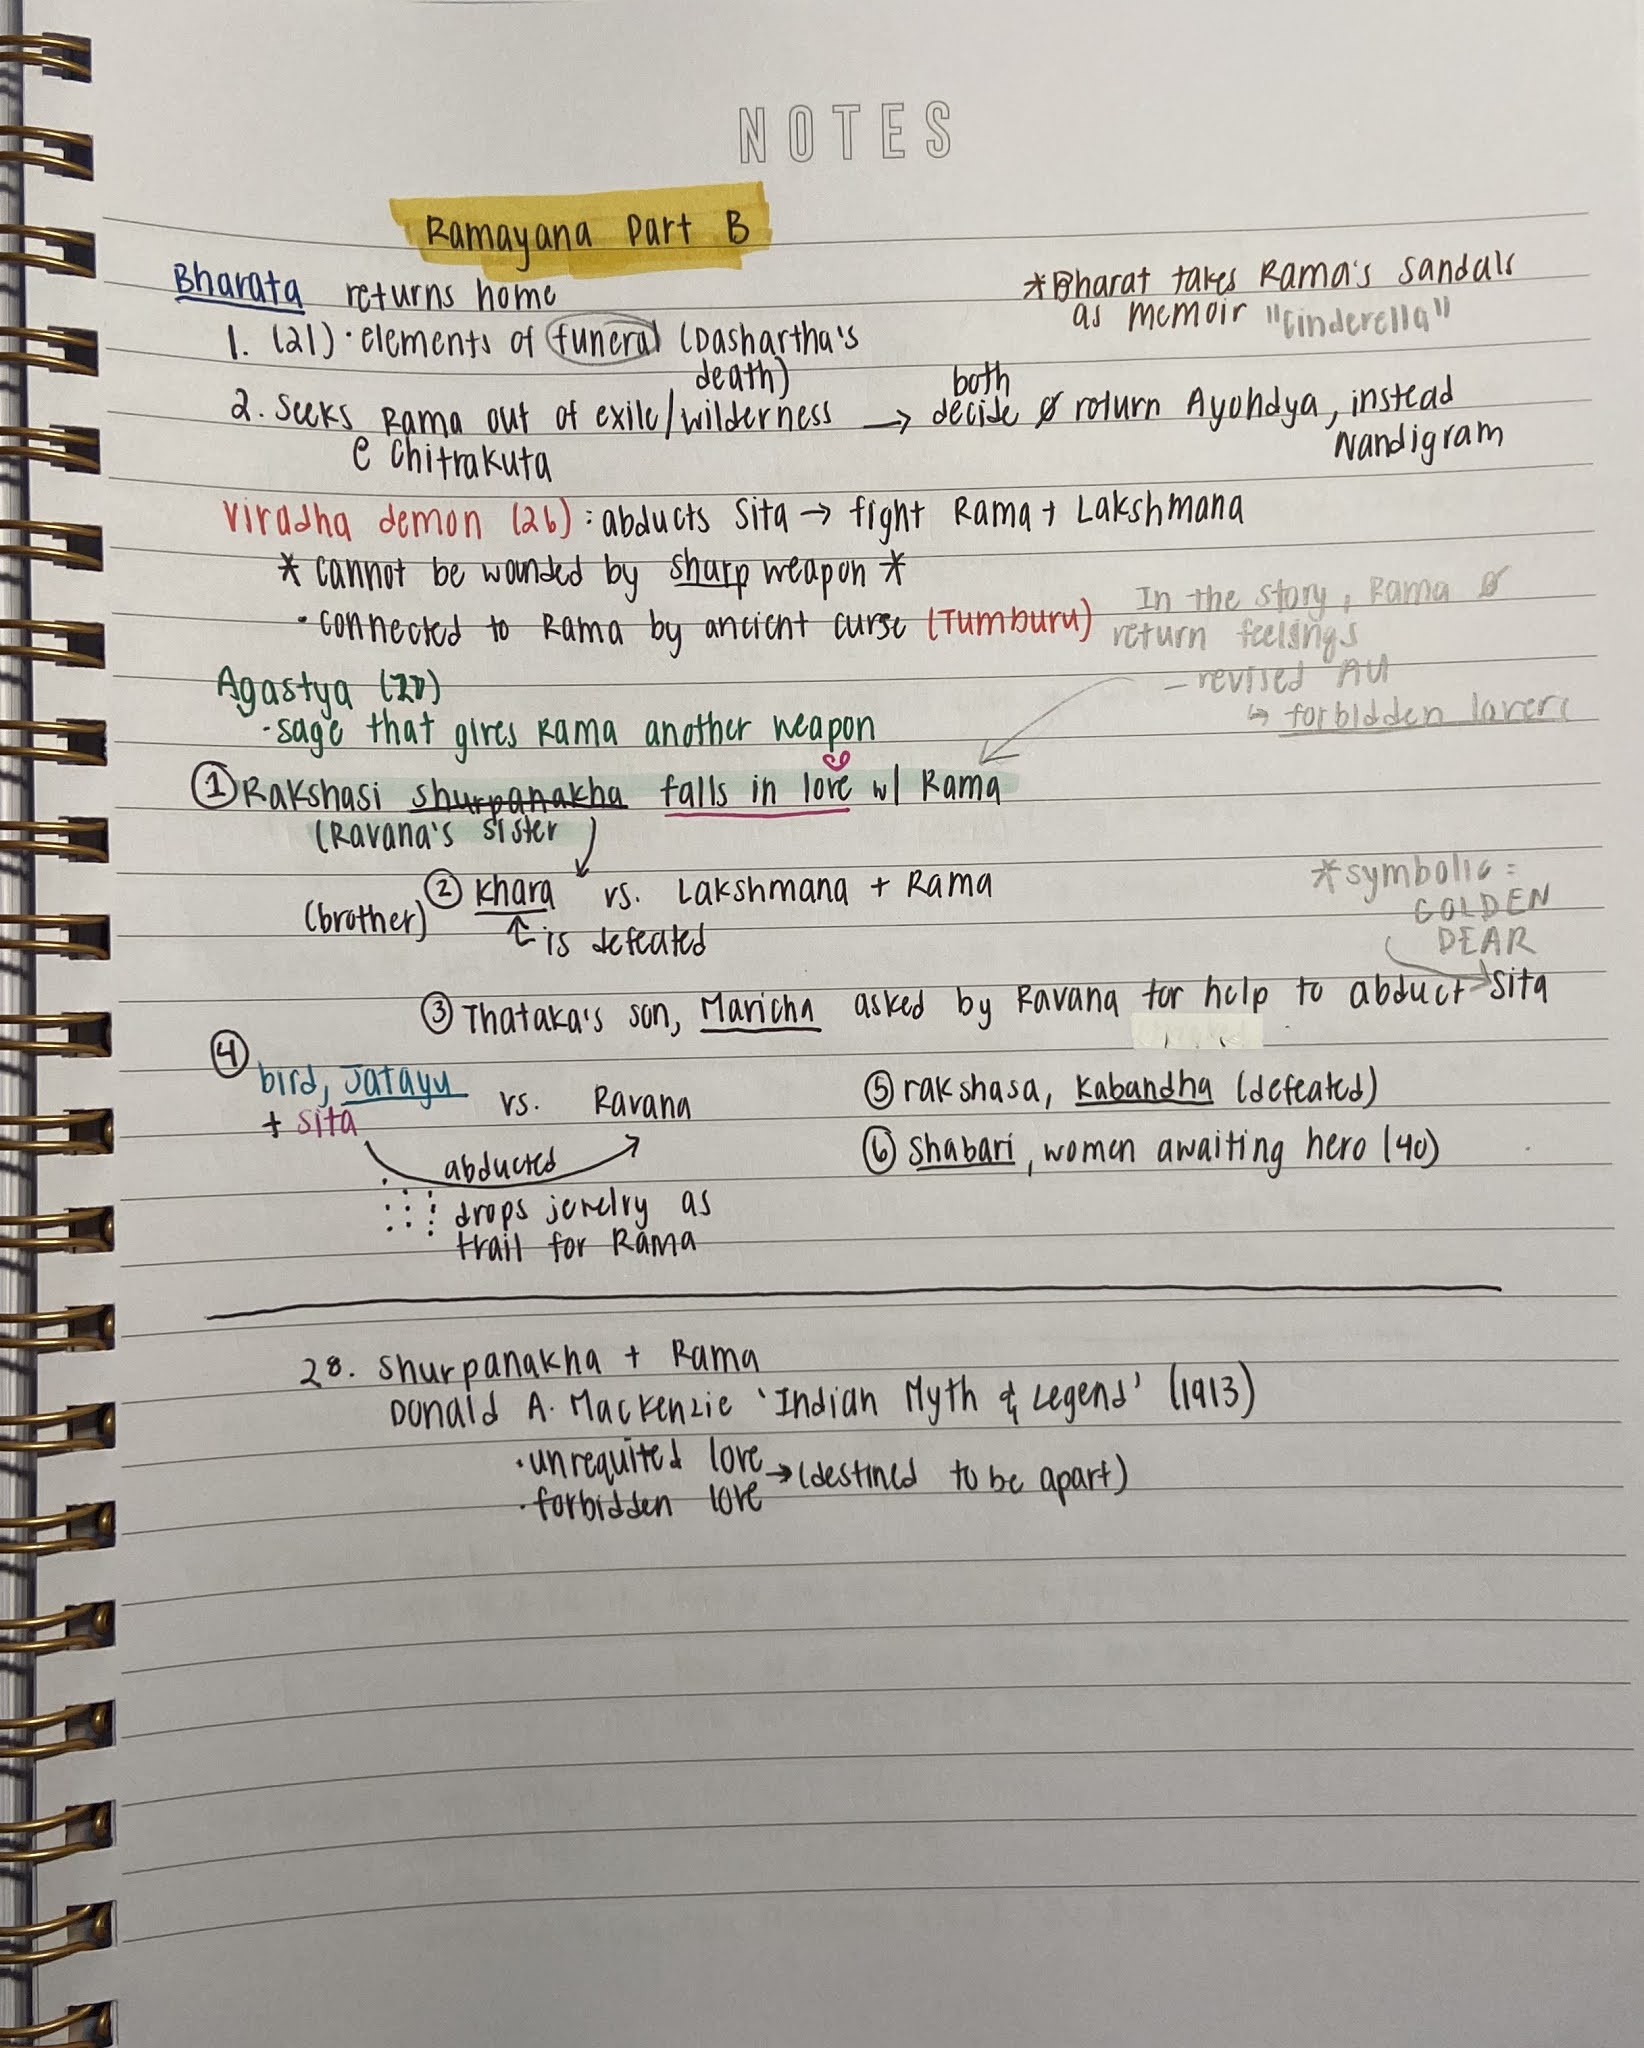 NOTES
Ramayana Part B
Bharata returns home
*Bharat takes Rama's sandals
as memoir "Cinderella"
1. (21) · elements of funeral (Dashartha's
death)
2. Seeks Rama out of exile/wilderness → both decide Ø return Ayohdya, instead
@ Chitrakuta
Nandigram
Viradha demon (26): abducts Sita → fight Rama + Lakshmana
* cannot be wounded by sharp weapon *
· connected to Rama by ancient curse (Tumburu)
In the story, Rama Ø
return feelings
- revised AU
↳ forbidden lovers
Agastya
· sage that gives Rama another weapon
① Rakshasi shurpanakha falls in love w/ Rama
(Ravana's sister
② Khara vs. Lakshmana + Rama
(brother)
is defeated
*symbolic:
GOLDEN
DEAR
③ Thataka's son, Maricha asked by Ravana for help to abduct Sita
④
bird, Jatayu vs. Ravana
+ Sita
abducted
drops jewelry as
trail for Rama
⑤ rakshasa, Kabandha (defeated)
⑥ Shabari, women awaiting hero (40)
28. Shurpanakha + Rama
Donald A. Mackenzie 'Indian Myth & Legend' (1913)
· unrequited love → (destined to be apart)
· forbidden love